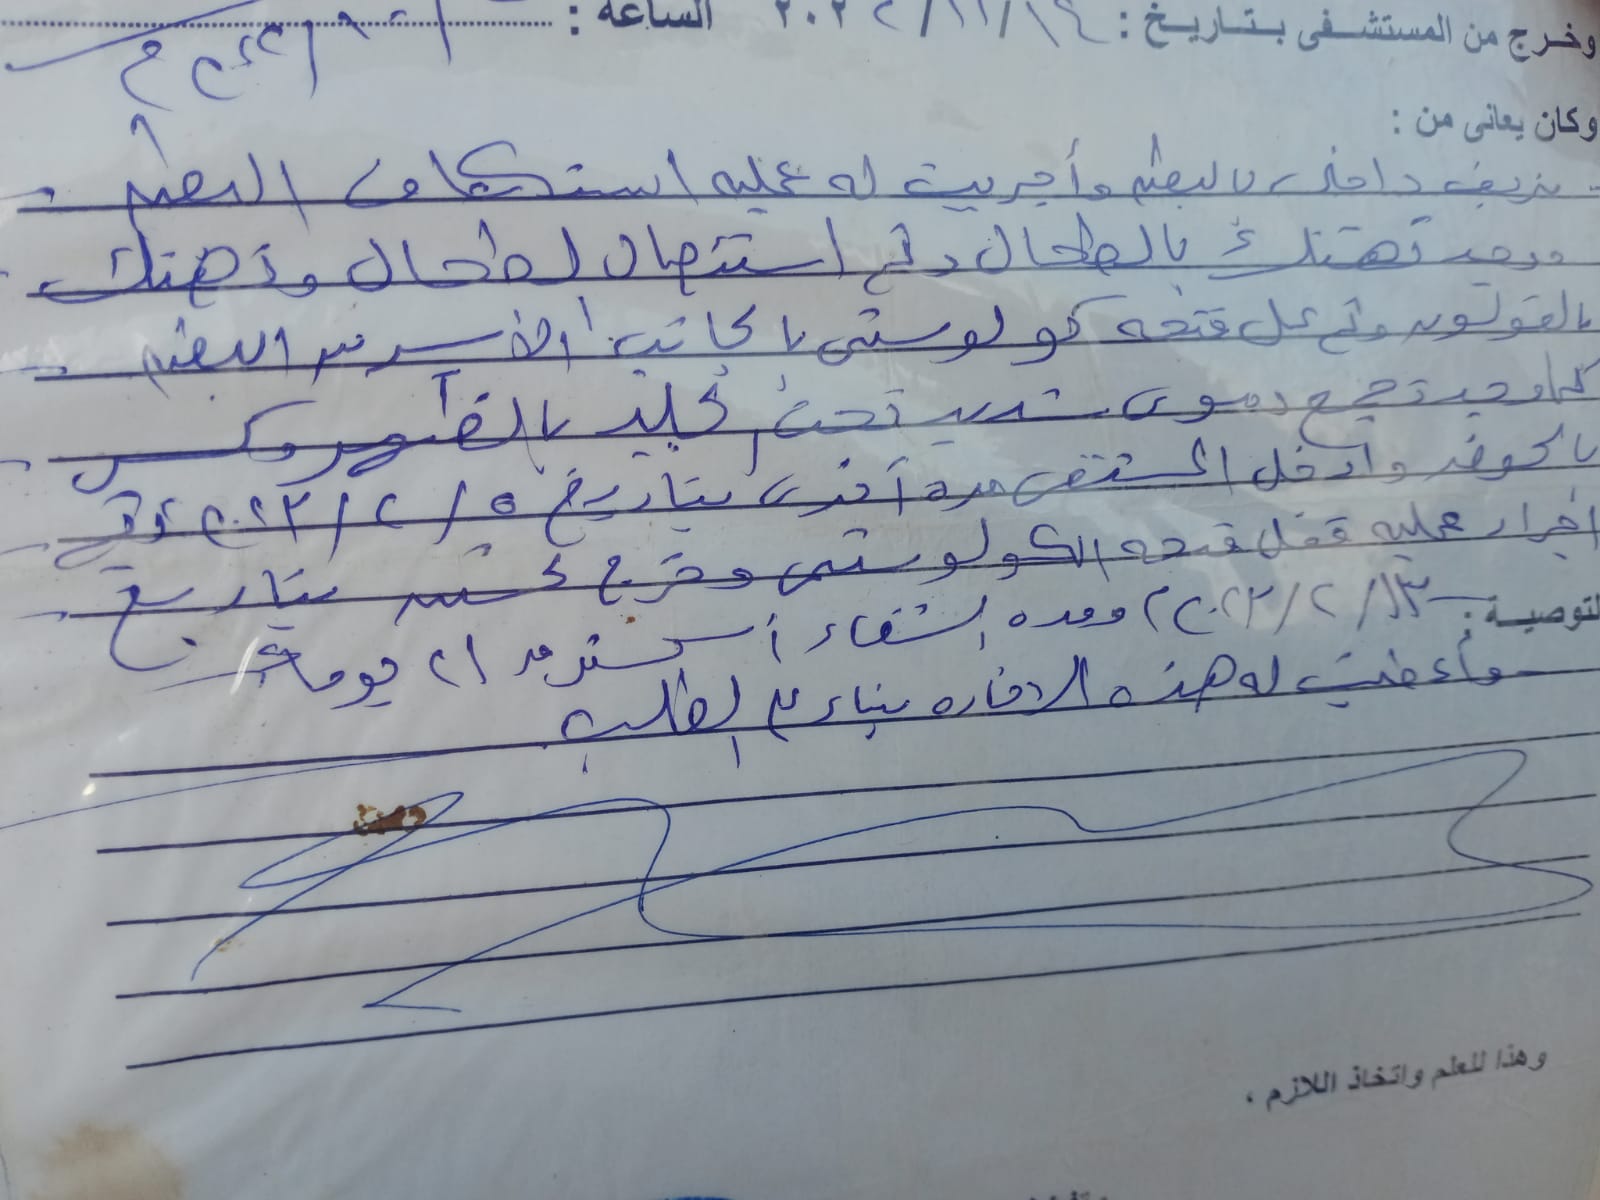 وخرج من المستشفى بتاريخ : ١٤/١١/٢٠٢٢ الساعة :
وكان يعانى من :
- نزيف داخلى بالبطن وأجريت له عملية استكشاف البطن
ووجد تهتك بالطحال وتم استئصال الطحال وتهتك
بالقولون وتم عمل فتحه كولوستمى بالجانب الأيسر من البطن
كما وجد تجمع دموى شديد تحت الجلد بالظهر وكسر
بالحوض وأدخل المستشفى مره أخرى بتاريخ ٥/٢/٢٠٢٣ وتم
إجراء عملية قفل فتحه الكولوستمى وخرج بتاريخ
التوصية : ١٣/٢/٢٠٢٣ م ومده الشفاء أكثر من ٢١ يوما
وأعطيت له هذه الافاده بناء على الطلب
وهذا للعلم واتخاذ اللازم ،